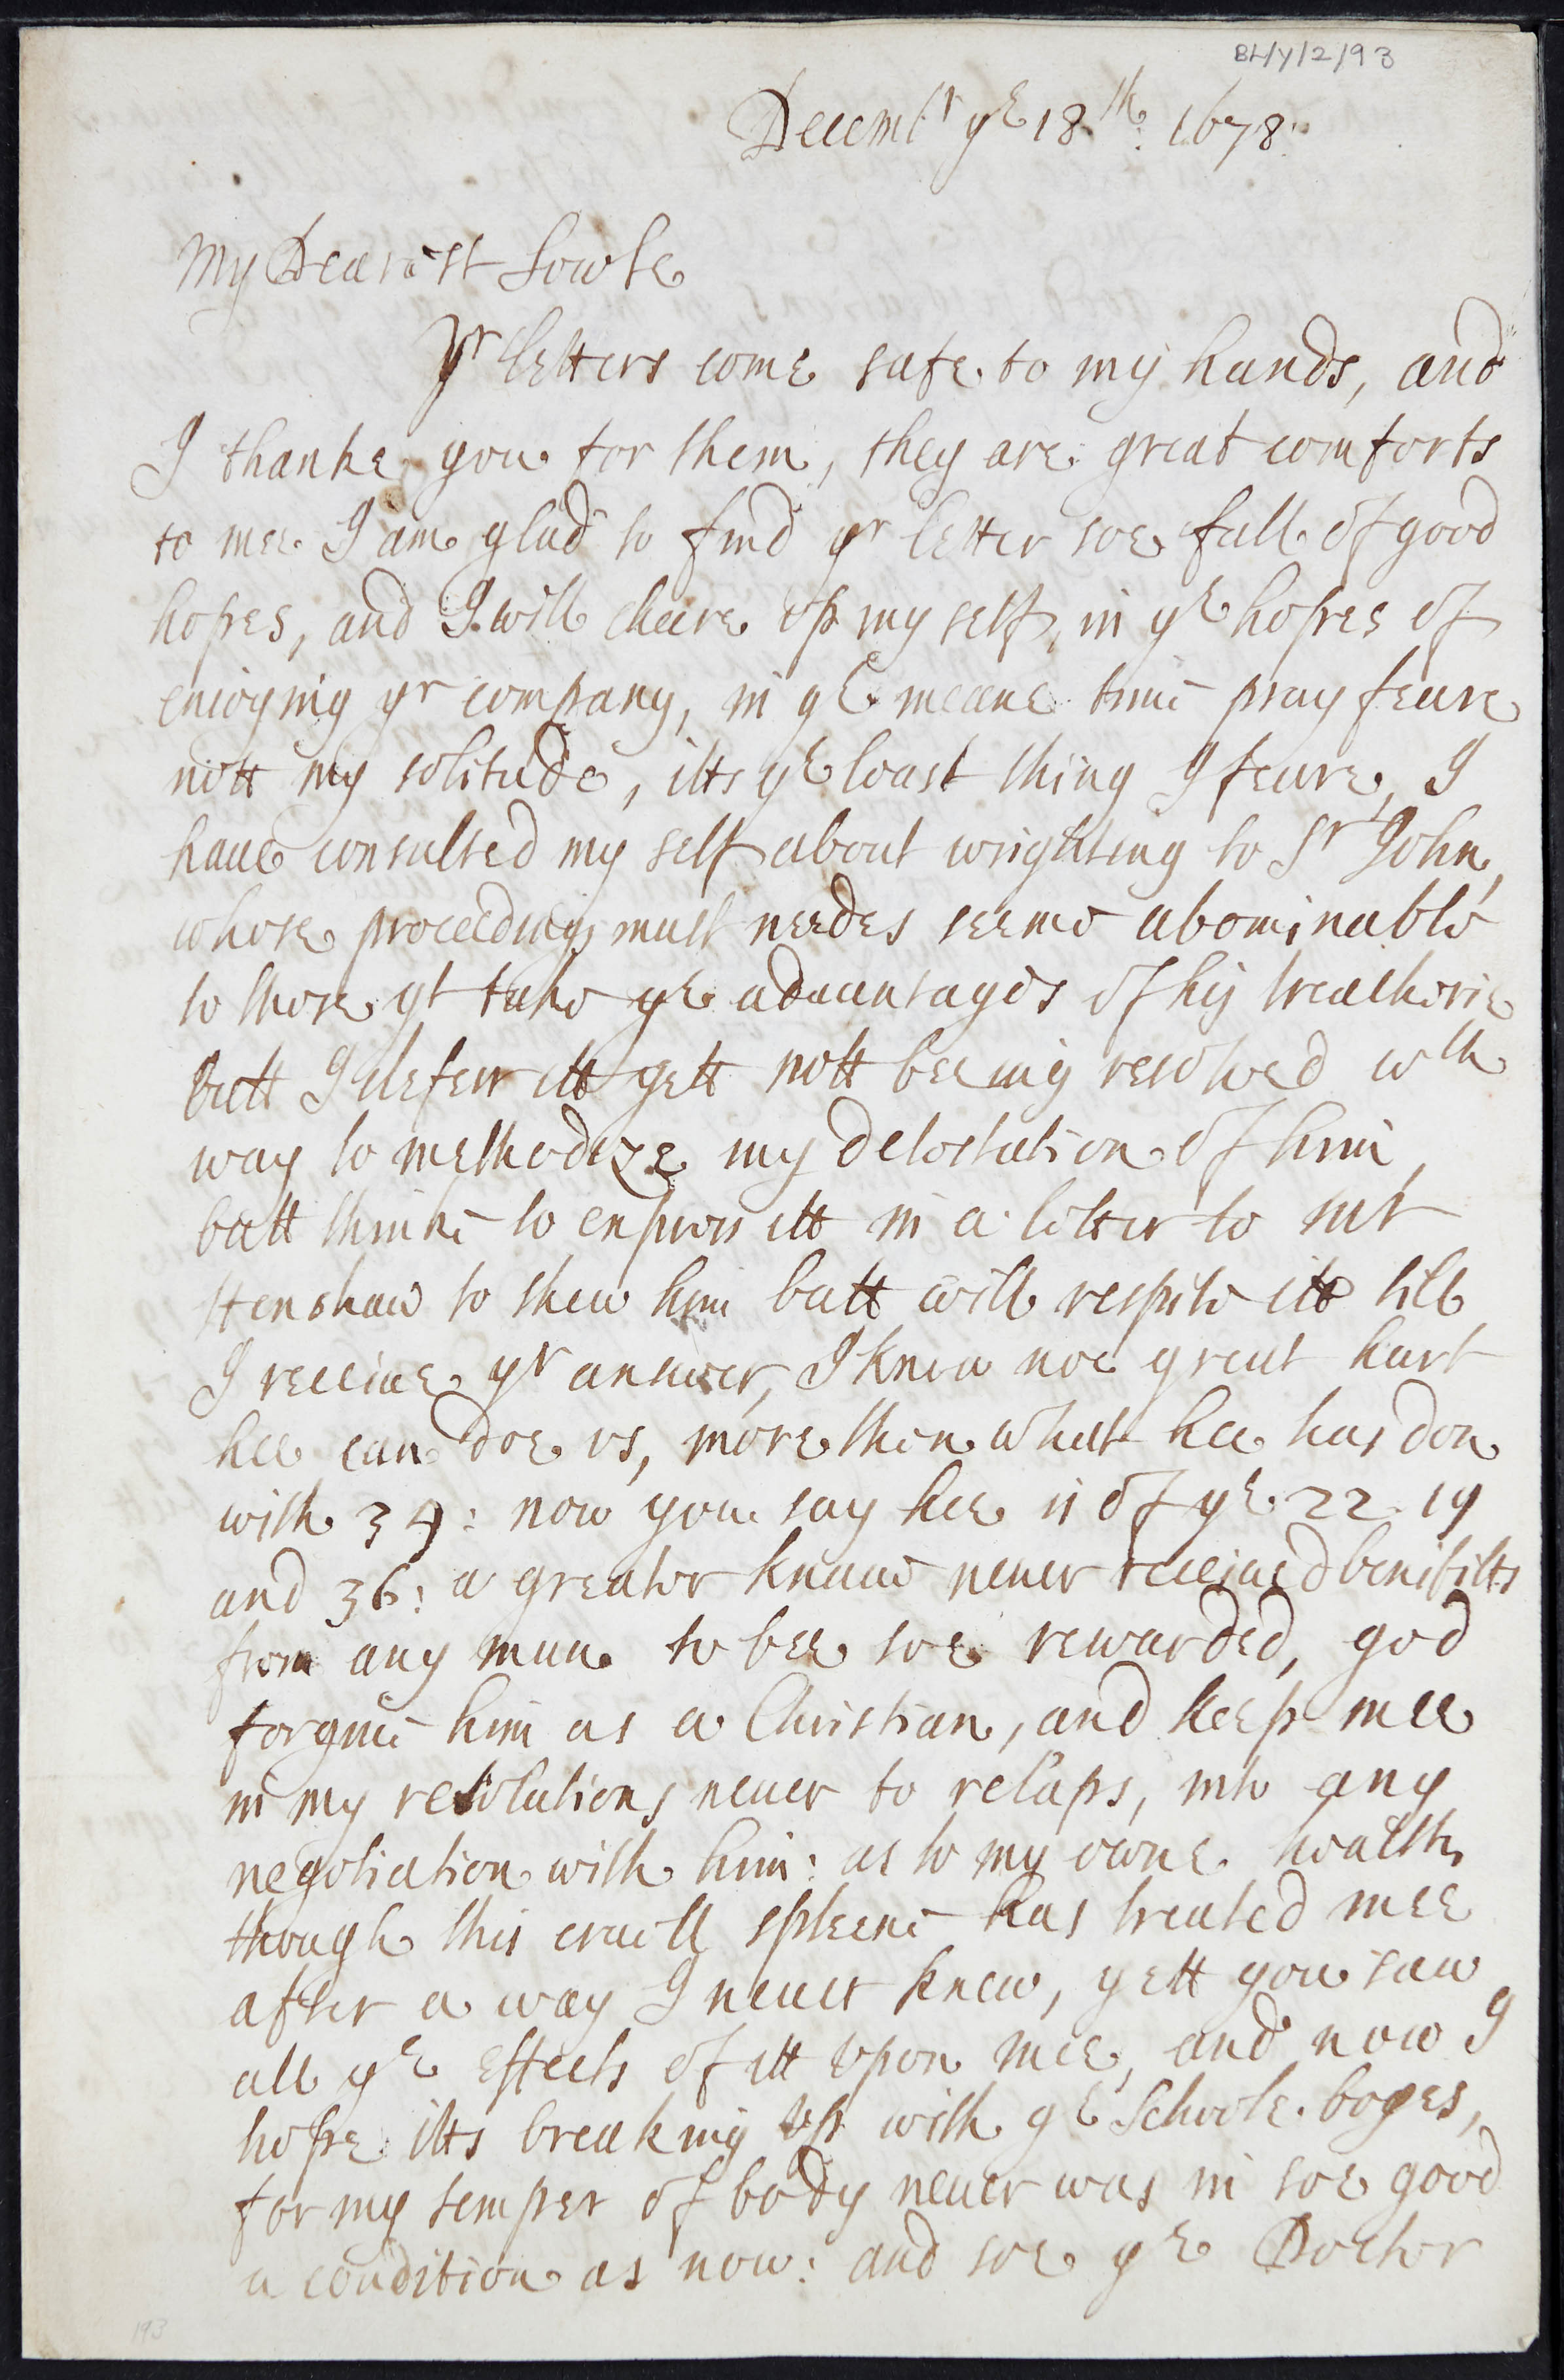 BH/Y/2/93
Decembr ye 18th: 1678:
My Dearest Sowle
Yr letters come safe to my hands, and
I thanke you for them, they are great comforts
to mee I am glad to find yr letter soe full of good
hopes, and I will cheere up my self, in ye hopes of
enioying yr company, in ye meane time pray feare
nott my solitude, itts ye least thing I feare, I
haue consulted my self about wrighting to Sr John,
whose proceedings must needes seeme abominable
to those yt take ye aduantages of his treatherie
butt I deferr itt yett nott beeing resolved wch
way to methodeze my detestation of him,
butt thinke to expres itt in a letter to mr
Henshaw to shew him butt will respite itt till
I receiue yr answer, I know noe great hurt
hee can doe vs, more then what hee has don
with 34: now you say hee is of ye 22. 19
and 36: a greater knaue neuer receiued benifitts
from any man to bee soe rewarded, god
forgiue him as a Christian, and keep mee
in my resolutions neuer to relaps, into any
negotiation with him: as to my owne health,
though this cruell spleene has treated mee
after a way I neuer knew, yett you saw
all ye effects of itt vpon mee, and now I
hope itts breaking vp with ye Schoole boyes,
for my temper of body neuer was in soe good
a condition as now: and soe ye Doctor
193